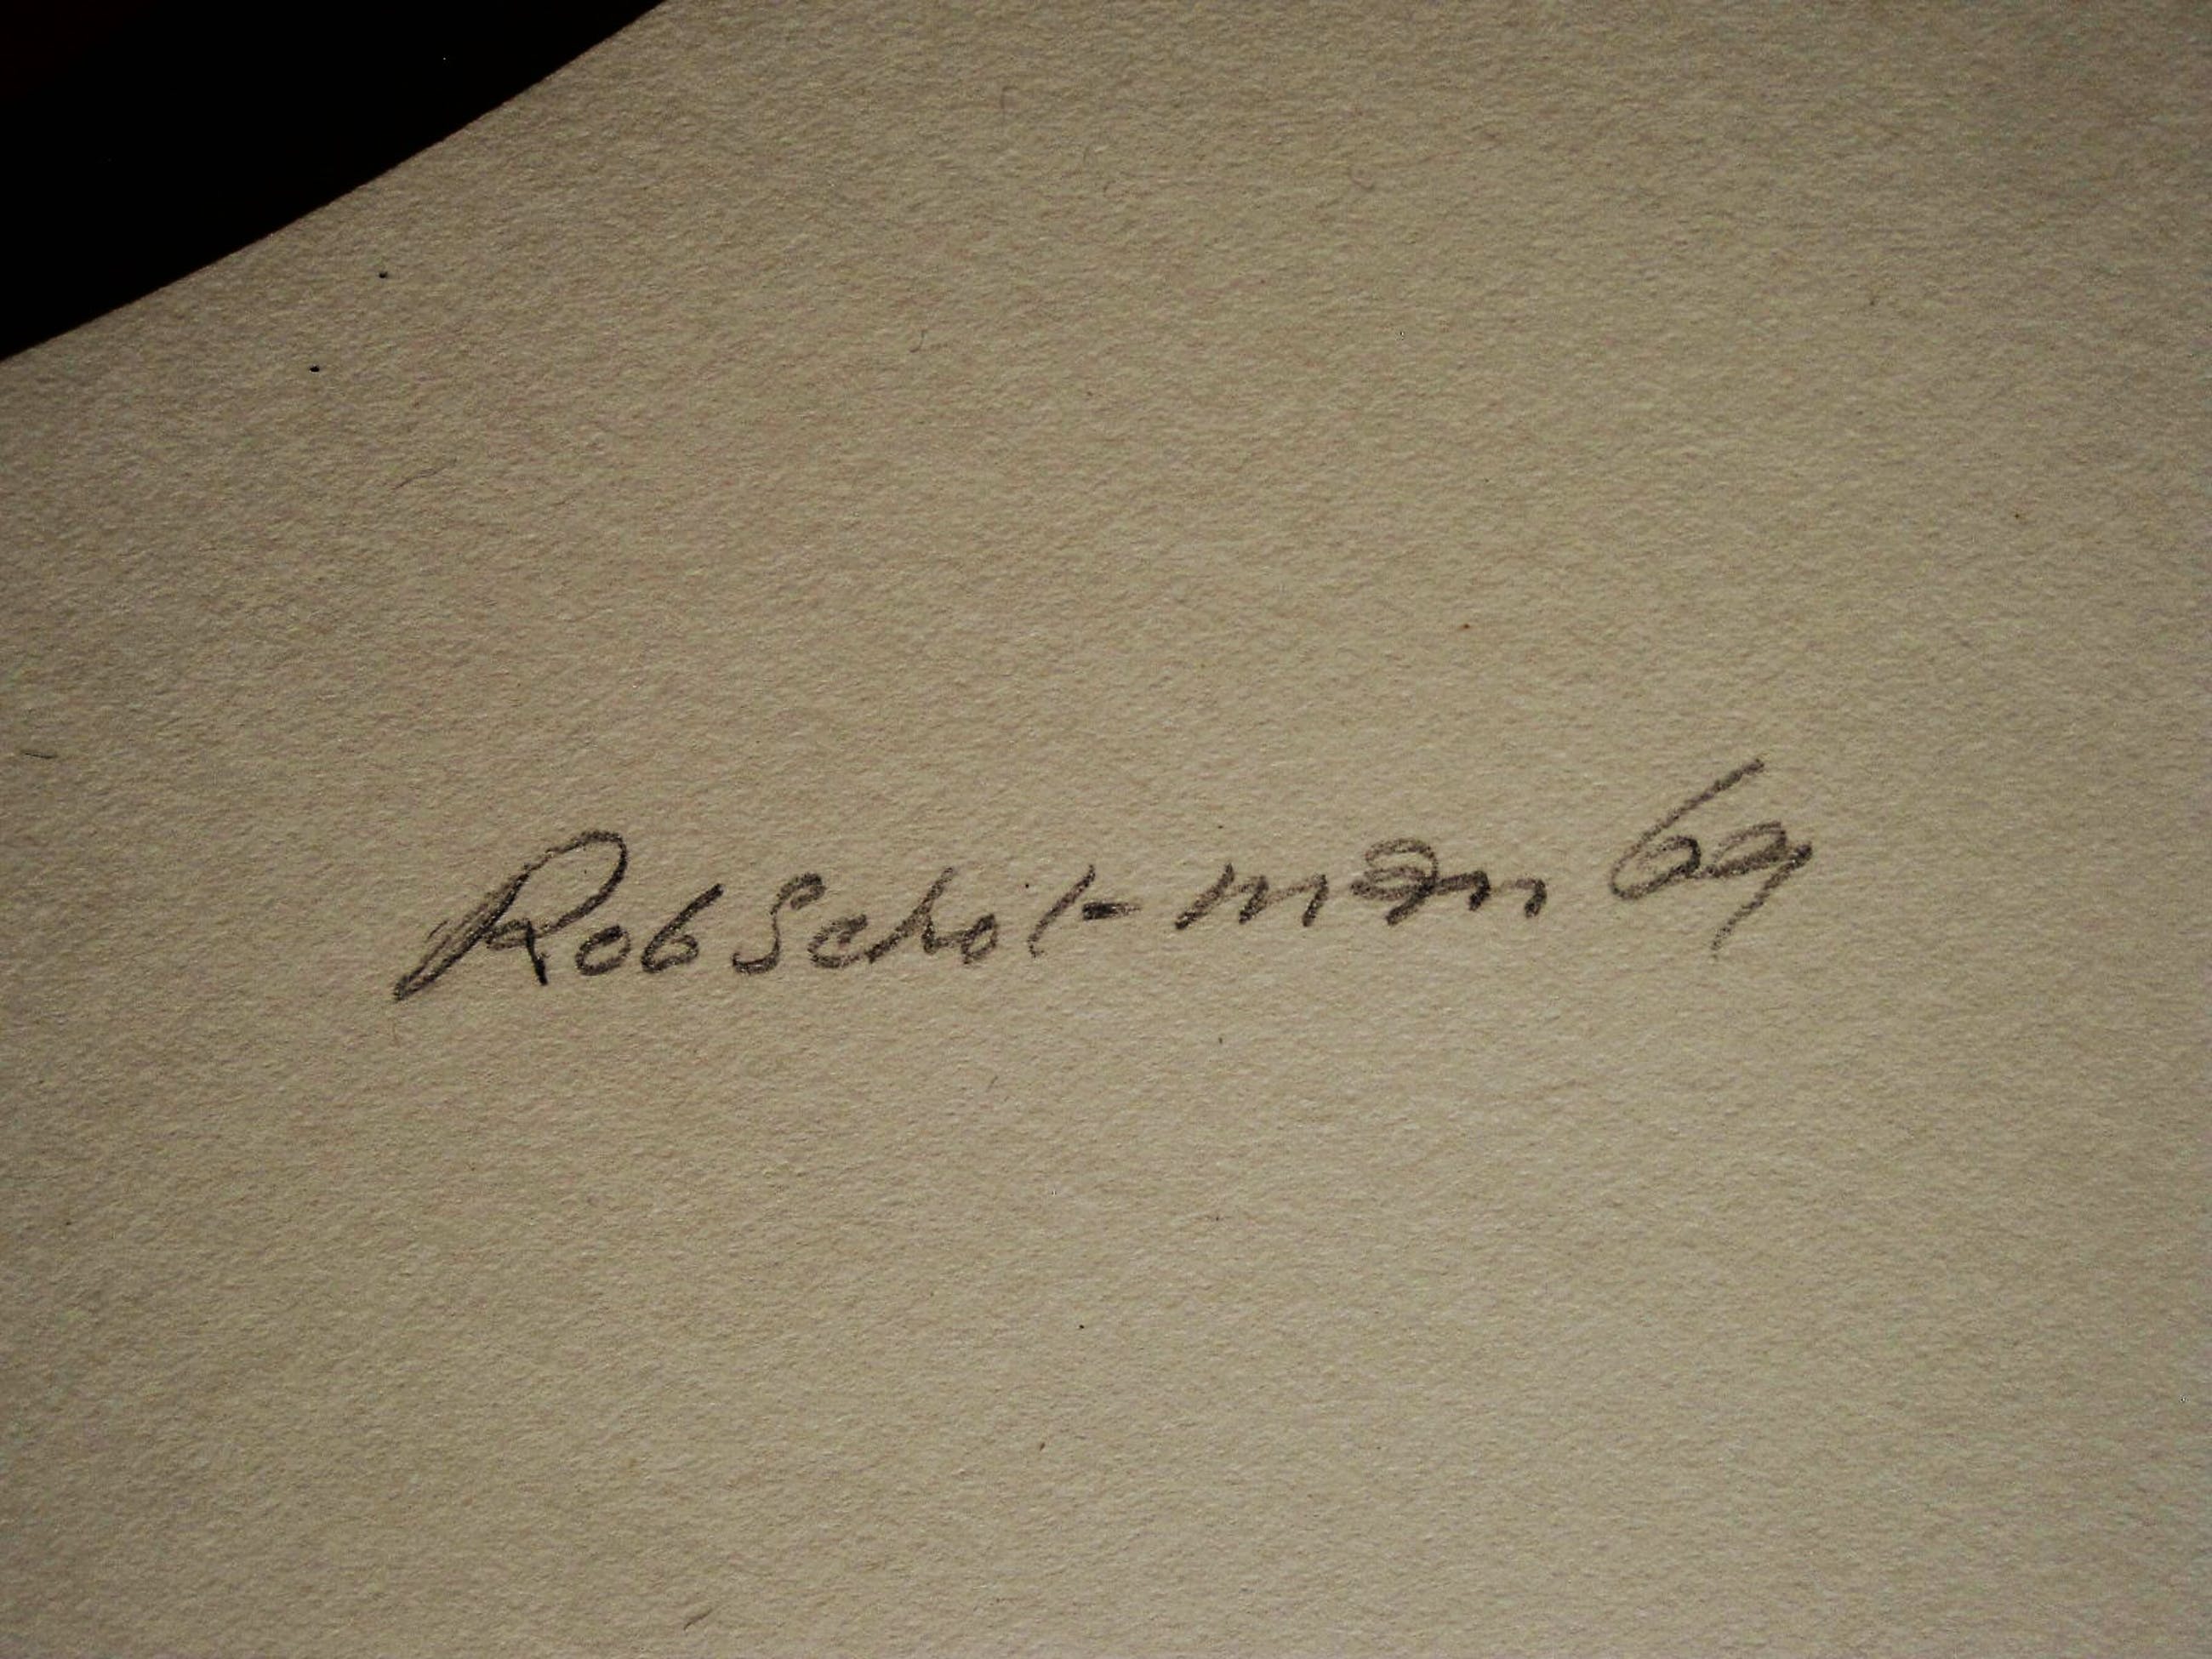 Rob Schot-man 69